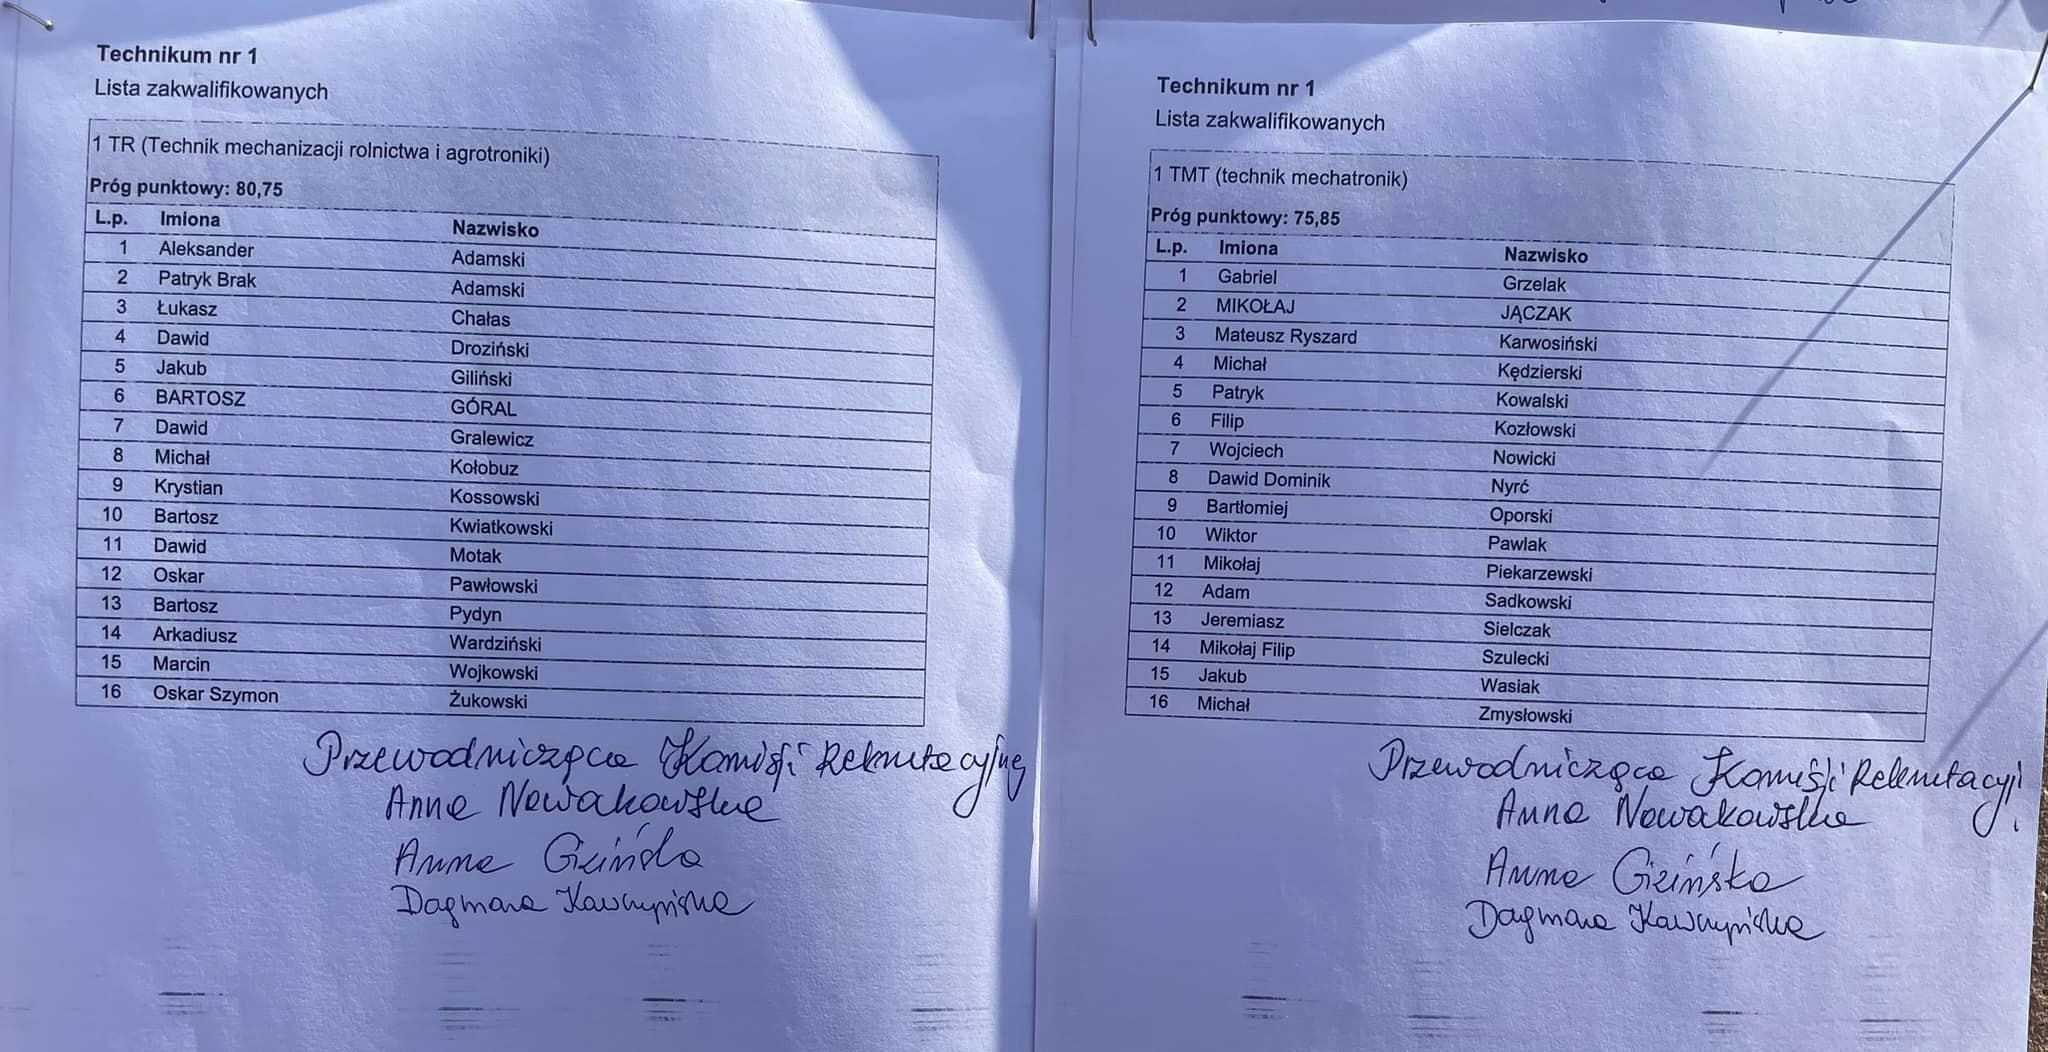 Technikum nr 1
Lista zakwalifikowanych
1 TR (Technik mechanizacji rolnictwa i agrotroniki)
Próg punktowy: 80,75
L.p. Imiona Nazwisko
1 Aleksander Adamski
2 Patryk Brak Adamski
3 Łukasz Chałas
4 Dawid Droziński
5 Jakub Giliński
6 BARTOSZ GÓRAL
7 Dawid Gralewicz
8 Michał Kołobuz
9 Krystian Kossowski
10 Bartosz Kwiatkowski
11 Dawid Motak
12 Oskar Pawłowski
13 Bartosz Pydyn
14 Arkadiusz Wardziński
15 Marcin Wojkowski
16 Oskar Szymon Żukowski
Przewodnicząca Komisji Rekrutacyjnej
Anna Nowakowska
Anna Gizińska
Dagmara Kawczyńska
Technikum nr 1
Lista zakwalifikowanych
1 TMT (technik mechatronik)
Próg punktowy: 75,85
L.p. Imiona Nazwisko
1 Gabriel Grzelak
2 MIKOŁAJ JĄCZAK
3 Mateusz Ryszard Karwosiński
4 Michał Kędzierski
5 Patryk Kowalski
6 Filip Kozłowski
7 Wojciech Nowicki
8 Dawid Dominik Nyrć
9 Bartłomiej Oporski
10 Wiktor Pawlak
11 Mikołaj Piekarzewski
12 Adam Sadkowski
13 Jeremiasz Sielczak
14 Mikołaj Filip Szulecki
15 Jakub Wasiak
16 Michał Zmysłowski
Przewodnicząca Komisji Rekrutacyj
Anna Nowakowska
Anna Gizińska
Dagmara Kawczyńska